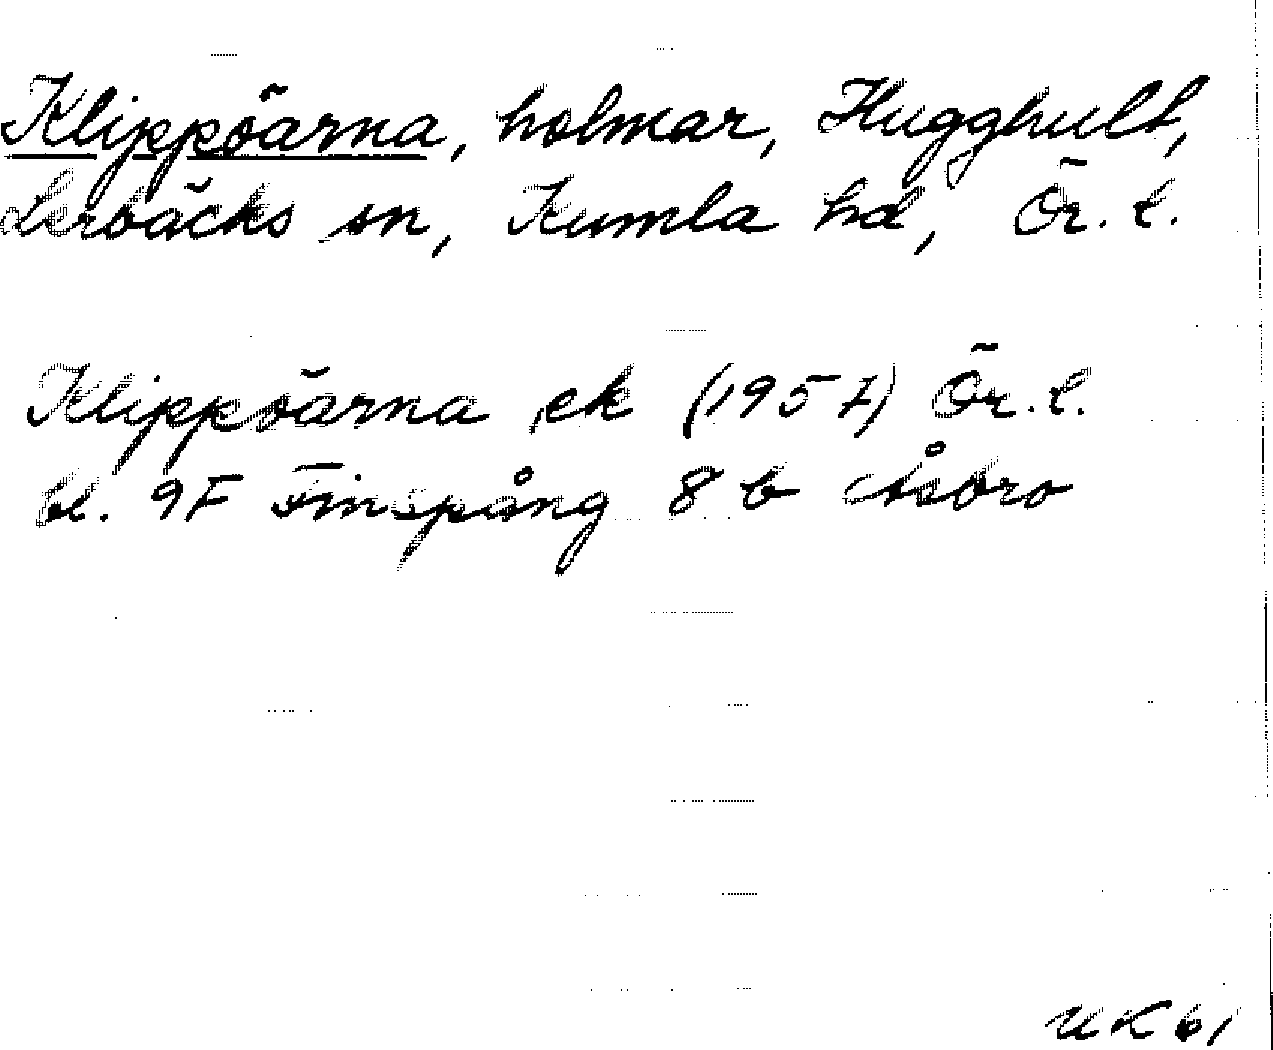 Klippöarna, holmar, Hugghult,
Lerbäcks sn, Kumla hd, Ör. l.
Klippöarna ek (1957) Ör. l.
bl. 9F Finspång 8 b Åsbro
UK 61